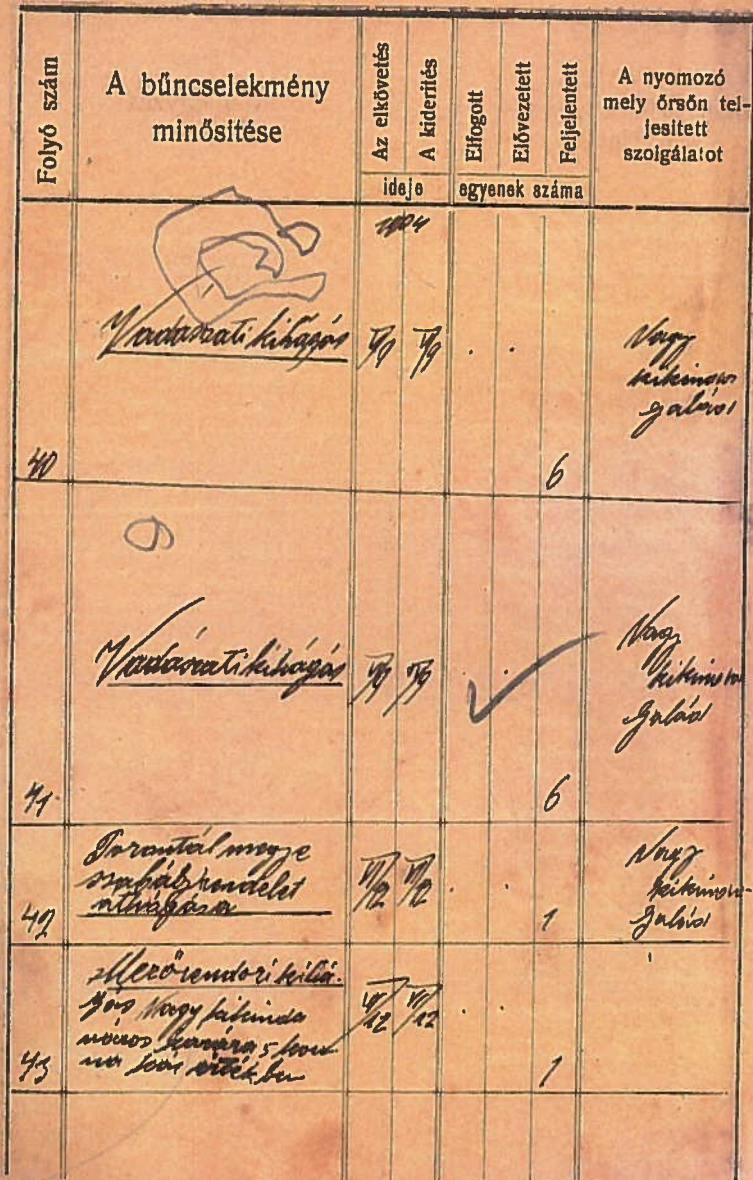 Folyó szám
A bűncselekmény
minősítése
Az elkövetés
A kiderítés
ideje
Elfogott
Elővezetett
Feljelentett
egyenek száma
A nyomozó
mely őrsön tel-
jesített
szolgálatot
1904
Vadászati kihágás
Nagy
kikinda
galád
40
6
Vadászati kihágás
Nagy
galád
41
6
Torontál megye
szabályrendelet
áthágása
VI/12 VI/12
Nagy
galád
42
1
Mezőrendőri kihá-
gás Nagy kikinda
város kárára 5 koro-
na kár értékben
VI/12 VI/12
43
1